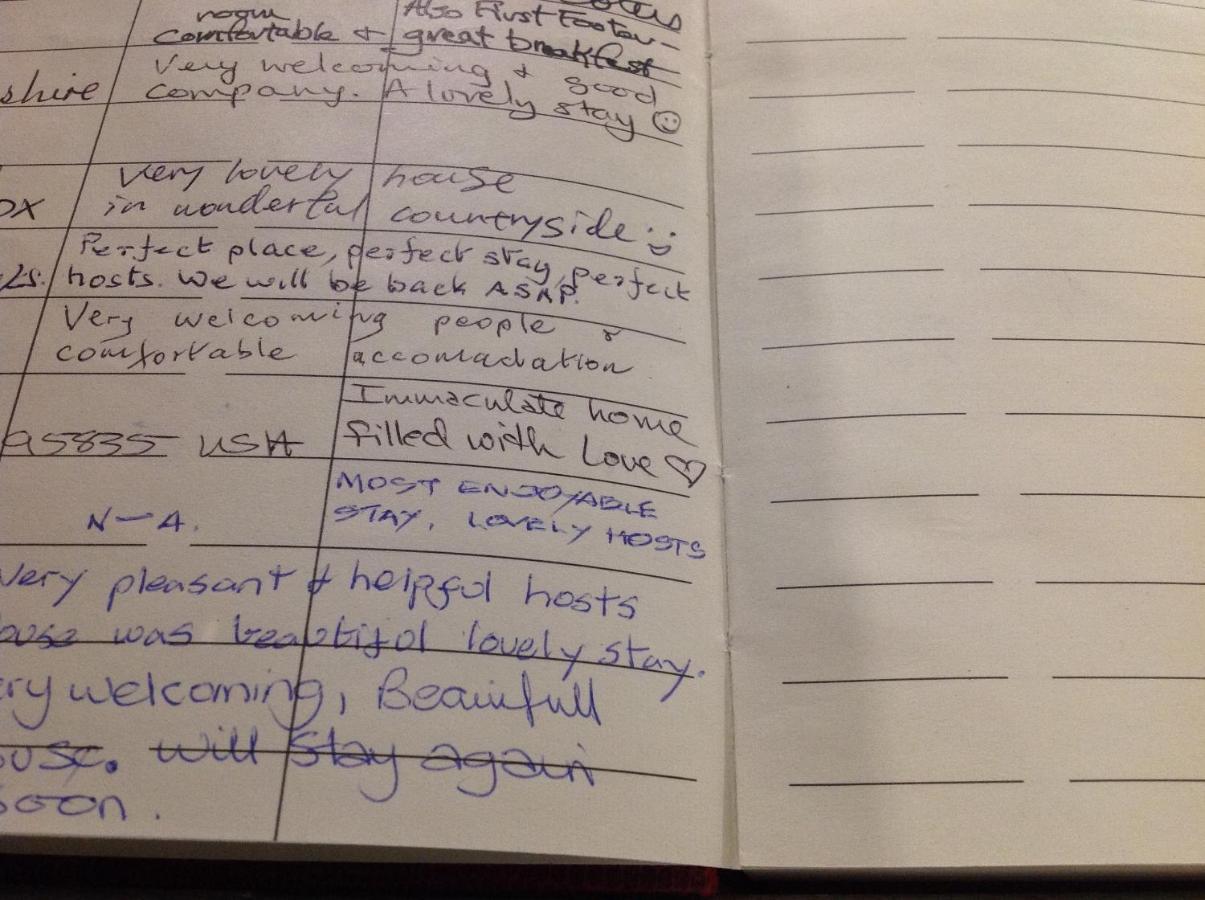 room Also First Footer-
comfortable & great breakfast
Very welcoming & good
shire company. A lovely stay ☺
Very lovely house
ox in wonderful countryside :)
Perfect place, perfect stay, perfect
hosts. We will be back ASAP.
Very welcoming people &
comfortable accomadation
Immaculate home
95835 USA filled with Love ♡
MOST ENJOYABLE
N-A. STAY, LOVELY HOSTS
Very pleasant & helpful hosts
ouse was beautiful lovely stay.
ery welcoming, Beautifull
ouse. will stay again
soon.